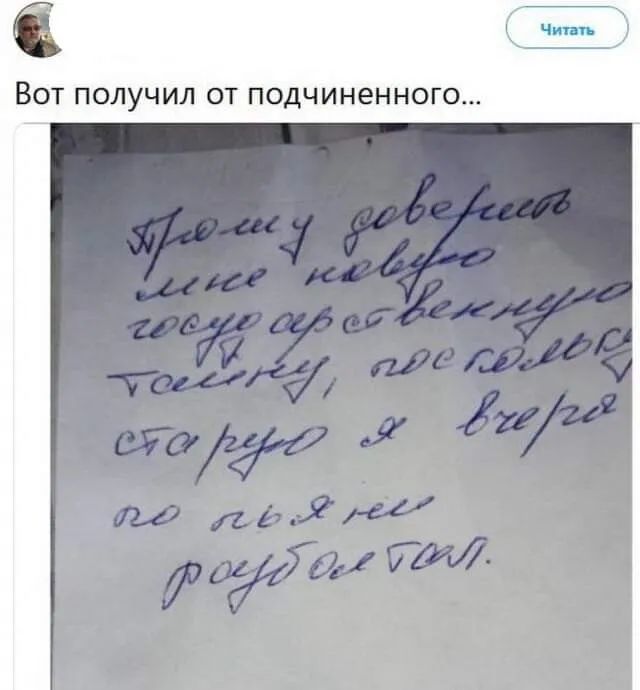 Читать
Вот получил от подчиненного...
Прошу доверить
мне новую
государственную
тайну, поскольку
старую я вчера
по пьяни
разболтал.